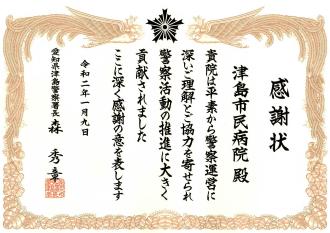 感謝状
津島市民病院 殿
貴院は平素から警察運営に
深いご理解とご協力を寄せられ
警察活動の推進に大きく
貢献されました
ここに深く感謝の意を表します
令和二年一月九日
愛知県津島警察署長 森 秀章